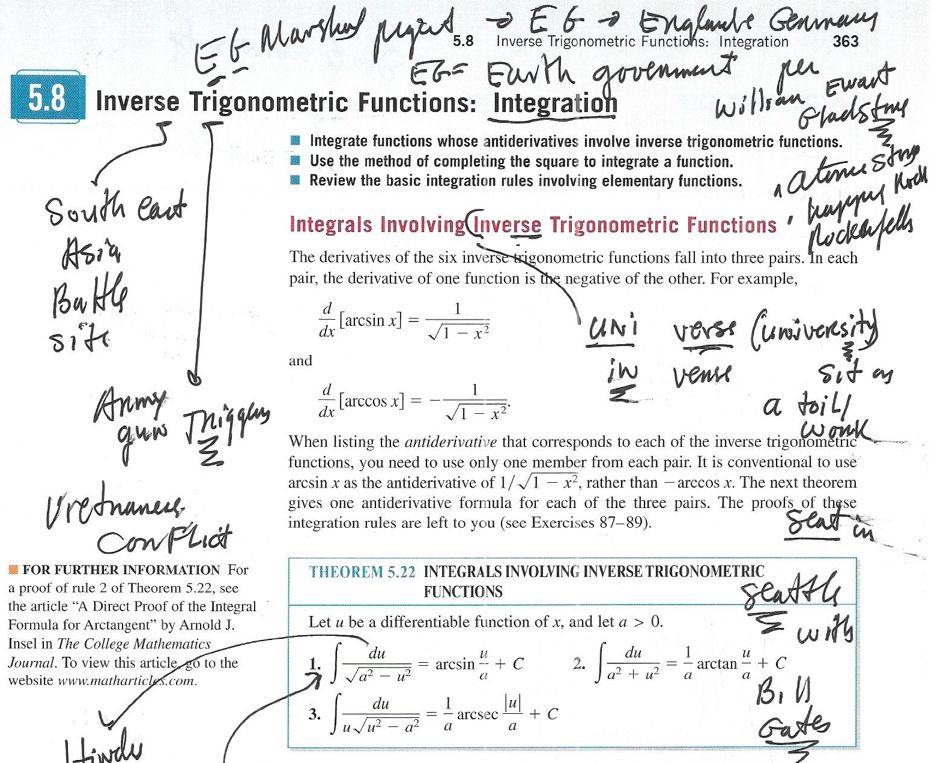 EG Marshal → EG → Germany
5.8 Inverse Trigonometric Functions: Integration 363
EG = Earth government per
William Ewart
Gladstone
5.8 Inverse Trigonometric Functions: Integration
■ Integrate functions whose antiderivatives involve inverse trigonometric functions.
■ Use the method of completing the square to integrate a function.
■ Review the basic integration rules involving elementary functions.
South east
Asia
Battle
site
Integrals Involving Inverse Trigonometric Functions
The derivatives of the six inverse trigonometric functions fall into three pairs. In each
pair, the derivative of one function is the negative of the other. For example,
d/dx [arcsin x] = 1/√(1 − x²)
and
d/dx [arccos x] = − 1/√(1 − x²).
uni verse (university)
in verse sit as
a toil/
work
Army
gun Triggers
When listing the antiderivative that corresponds to each of the inverse trigonometric
functions, you need to use only one member from each pair. It is conventional to use
arcsin x as the antiderivative of 1/√(1 − x²), rather than −arccos x. The next theorem
gives one antiderivative formula for each of the three pairs. The proofs of these
integration rules are left to you (see Exercises 87–89).
conflict
seat in
seattle
with
Bill
Gates
■ FOR FURTHER INFORMATION For
a proof of rule 2 of Theorem 5.22, see
the article “A Direct Proof of the Integral
Formula for Arctangent” by Arnold J.
Insel in The College Mathematics
Journal. To view this article, go to the
website www.matharticles.com.
THEOREM 5.22 INTEGRALS INVOLVING INVERSE TRIGONOMETRIC
FUNCTIONS
Let u be a differentiable function of x, and let a > 0.
1. ∫ du/√(a² − u²) = arcsin u/a + C 2. ∫ du/(a² + u²) = 1/a arctan u/a + C
3. ∫ du/(u√(u² − a²)) = 1/a arcsec |u|/a + C
Hindu